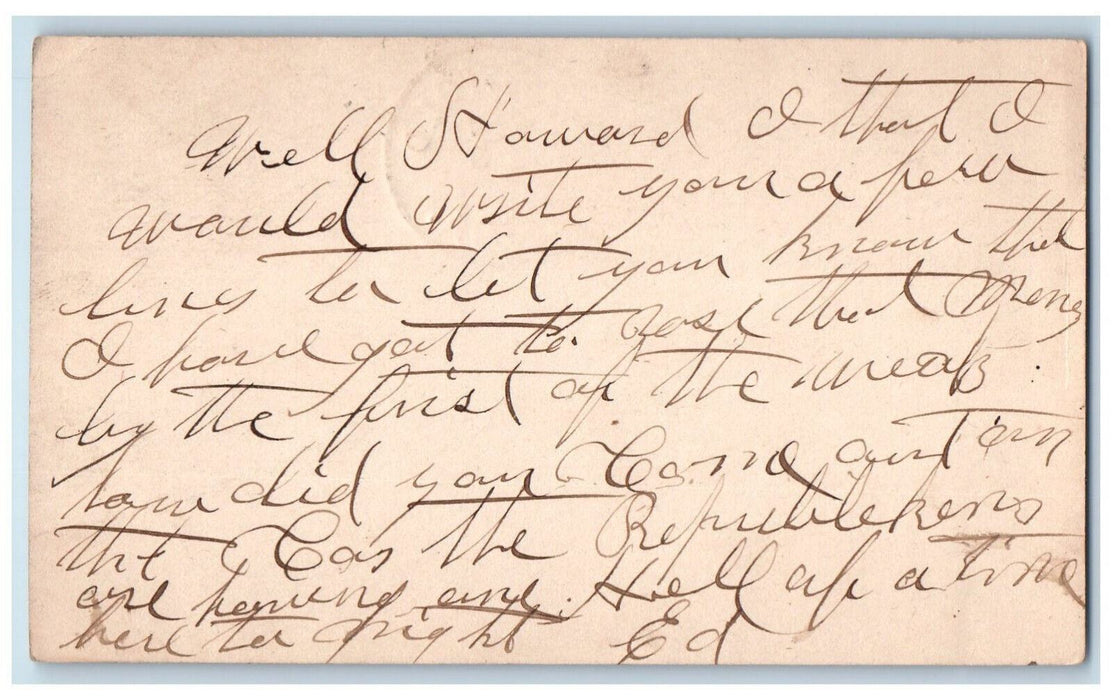 Well Howard I that I
would write you a few
lines to let you know that
I have got to hast that Mony
by the first of the weak
how did you Come out on
the Cas the Republickens
are having one Hell of a time
here to night Ed